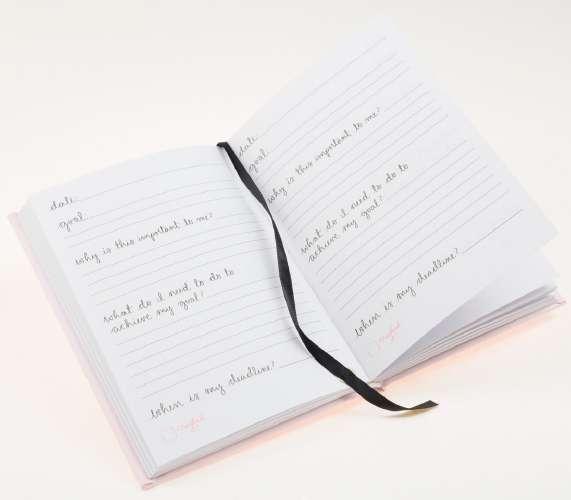 date
goal
why is this important to me?
what do I need to do to
achieve my goal?
when is my deadline?
date
goal
why is this important to me?
what do I need to do to
achieve my goal?
when is my deadline?